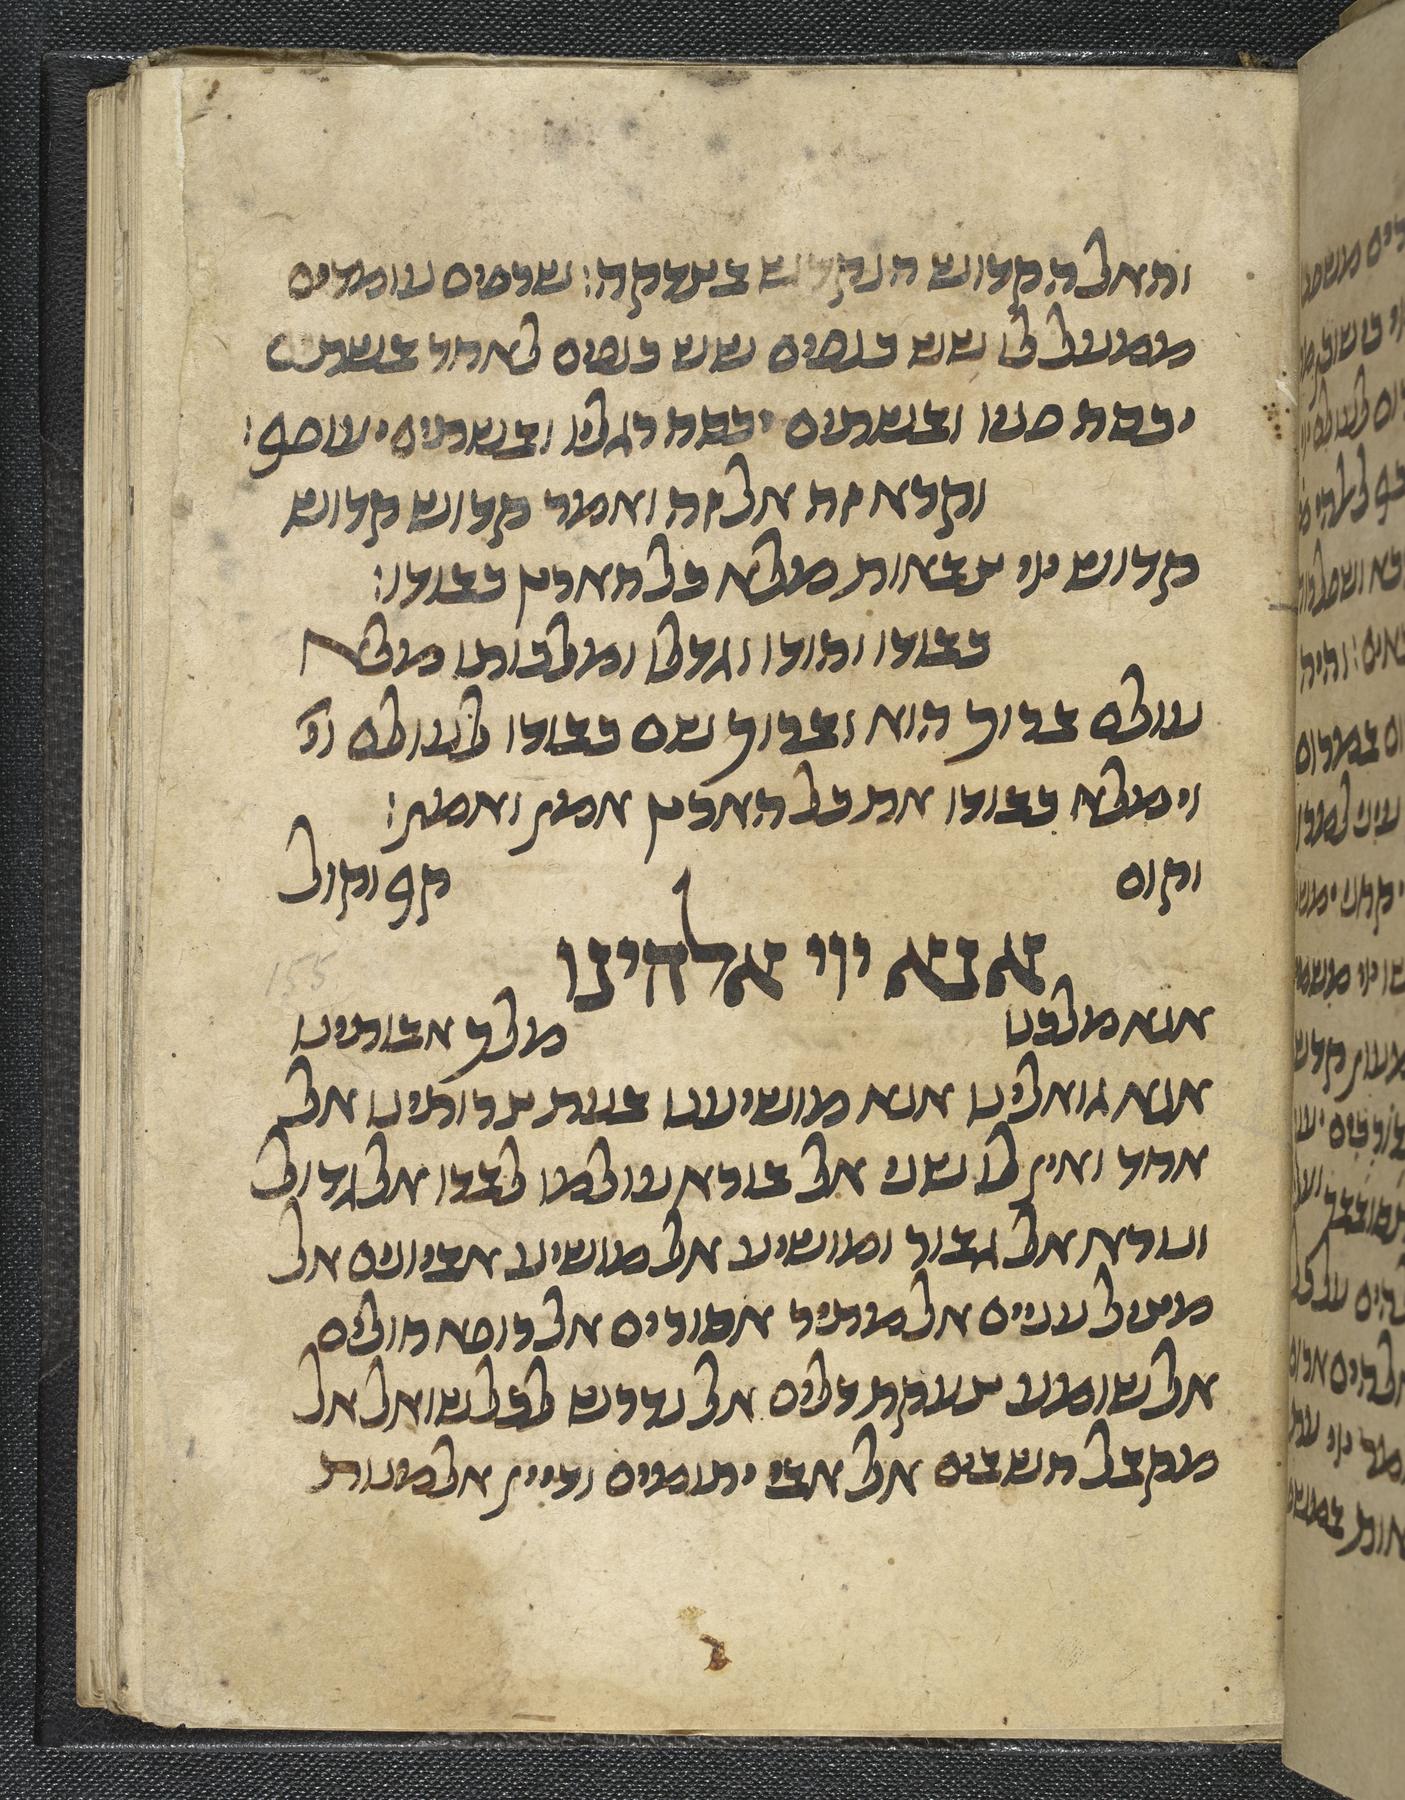 והאל הקדוש הנקדש בצדקה: שרפים עומדים
ממעל לו שש כנפים שש כנפים לאחד בשתים
יכסה פניו ובשתים יכסה רגליו ובשתים יעופף:
וקרא זה אל זה ואמר קדוש קדוש
קדוש ייי צבאות מלא כל הארץ כבודו:
כבודו והודו וגדלו ומלכותו מלא
עולם ברוך הוא וברוך שם כבודו לעולם
וימלא כבודו את כל הארץ אמן ואמן:
וקום
קף וקול
אנא ייי אלהינו
155
אנא מלכנו
מלך אבותינו
אנא גואלינו אנא מושיענו בעת צרותינו אל
אחד ואין לו שני אל בורא עולמו לבדו אל גדול
ונורא אל גבור ומושיע אל מושיע אביונים אל
מציל עניים אל מתיר אסורים אל רופא חולים
אל שומע צעקת דלים אל נדרש לכל שואל אל
מקבל השבים אל אבי יתומים ודיין אלמנות